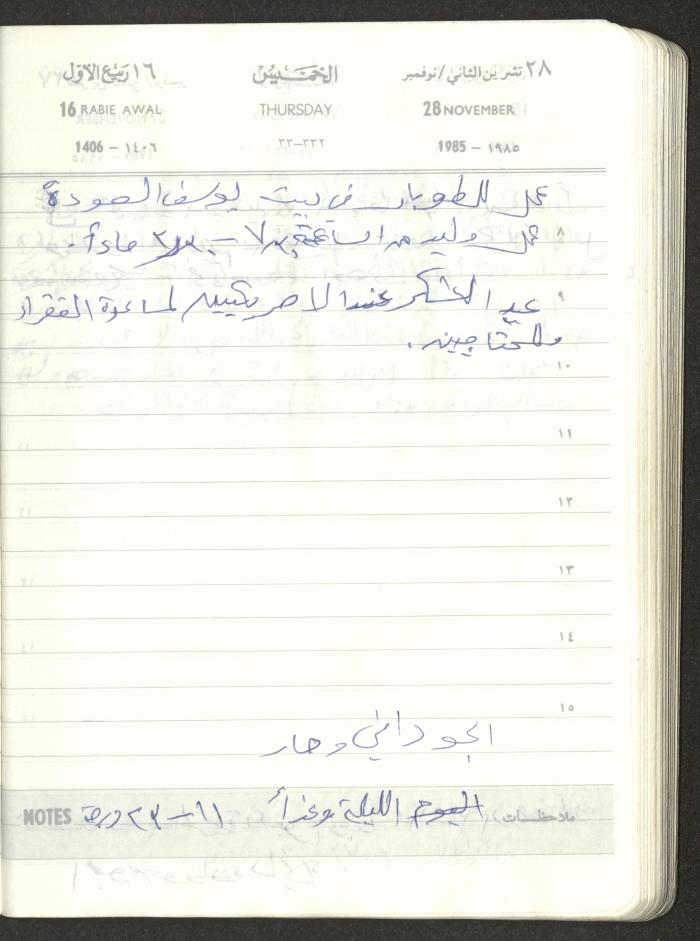 ٢٨ تشرين الثاني/نوفمبر الخميس ١٦ ربيع الأول
28 NOVEMBER THURSDAY 16 RABIE AWAL
1985 - ١٩٨٥ ٣٣-٣٣٢ 1406 - ١٤٠٦
عمل للطوبار في بيت يوسف الصودة
٨ عمل وليد من الساعة ٧ - مساءً.
٩ عيد الشكر عند الامريكيين لمساعدة الفقراء
والمحتاجين.
١٠
١١
١٢
١٣
١٤
١٥
الجو دافئ وحار
ملاحظات اليوم الليلة وغداً ١١-٢٣ درجة NOTES